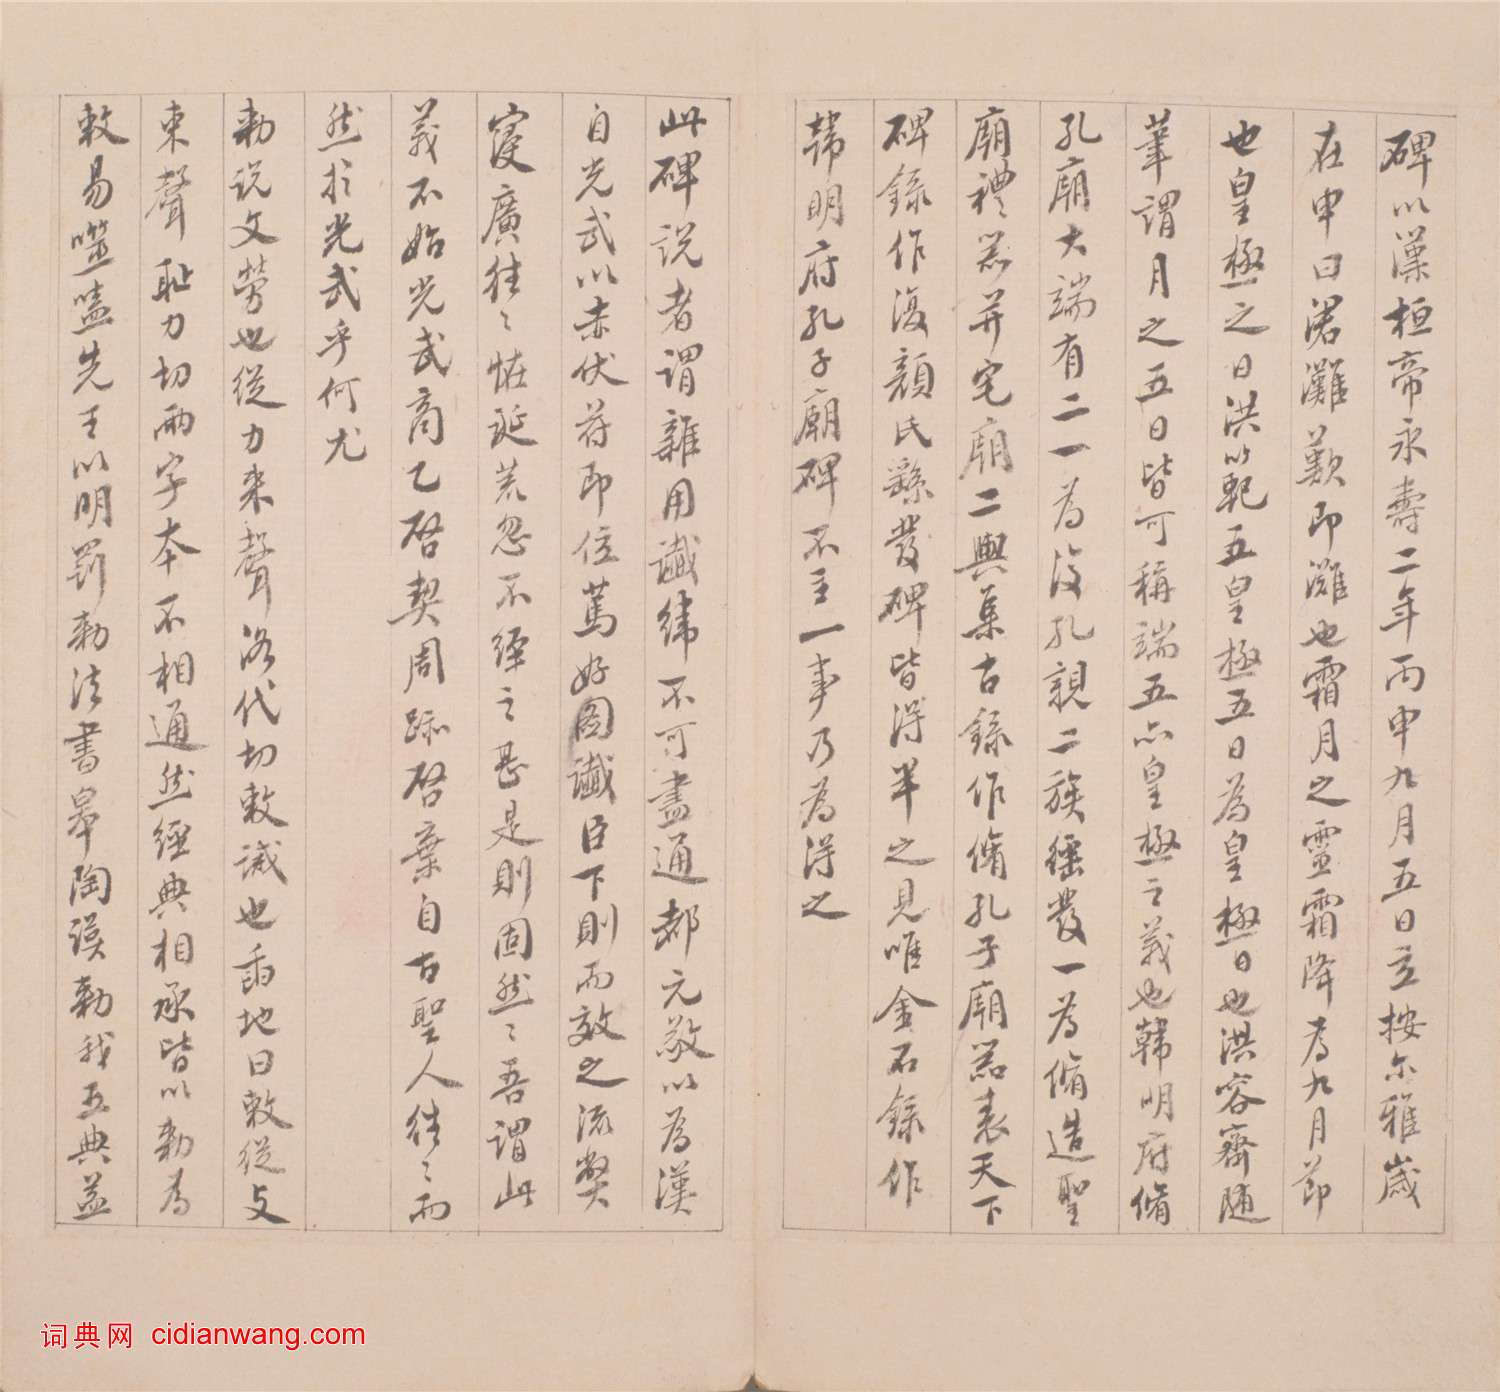 碑以漢桓帝永壽二年丙申九月五日立按尔雅歲
在申曰涒灘歎即灘也霜月之靈霜降為九月節
也皇極之日洪範五皇極五日為皇極日也洪容齋隨
筆謂月之五日皆可稱端五亦皇極之義也韓明府脩
孔廟大端有二一為復孔親二族繇發一為脩造聖
廟禮器并宅廟二輿集古錄作脩孔子廟器表天下
碑錄作復顏氏繇發碑皆得半之見唯金石錄作
韓明府孔子廟碑不主一事乃為得之
此碑說者謂雜用讖緯不可盡通都元敬以為漢
自光武以赤伏符即位篤好圖讖臣下則而效之流獘
寖廣往〻恠誕荒忽不經之甚是則固然〻吾謂此
義不始光武商乙啓契周跡啓棄自古聖人往〻而
然扵光武乎何尤
勑說文勞也從力来聲洛代切敕誡也臿地曰敕從攴
束聲恥力切兩字本不相通然經典相承皆以勑為
敕易噬嗑先王以明罰勑法書皋陶謨勑我五典益
词典网 cidianwang.com